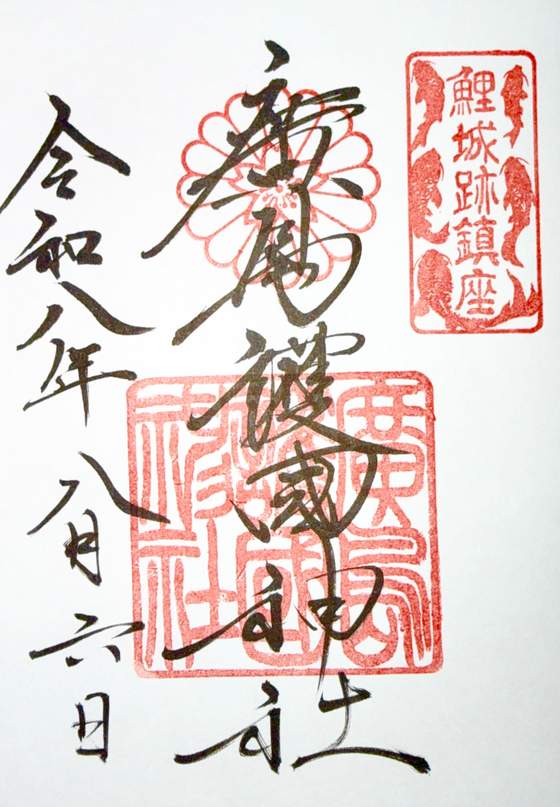 鯉城跡鎮座
廣島護國神社
廣島護國神社
令和八年八月六日